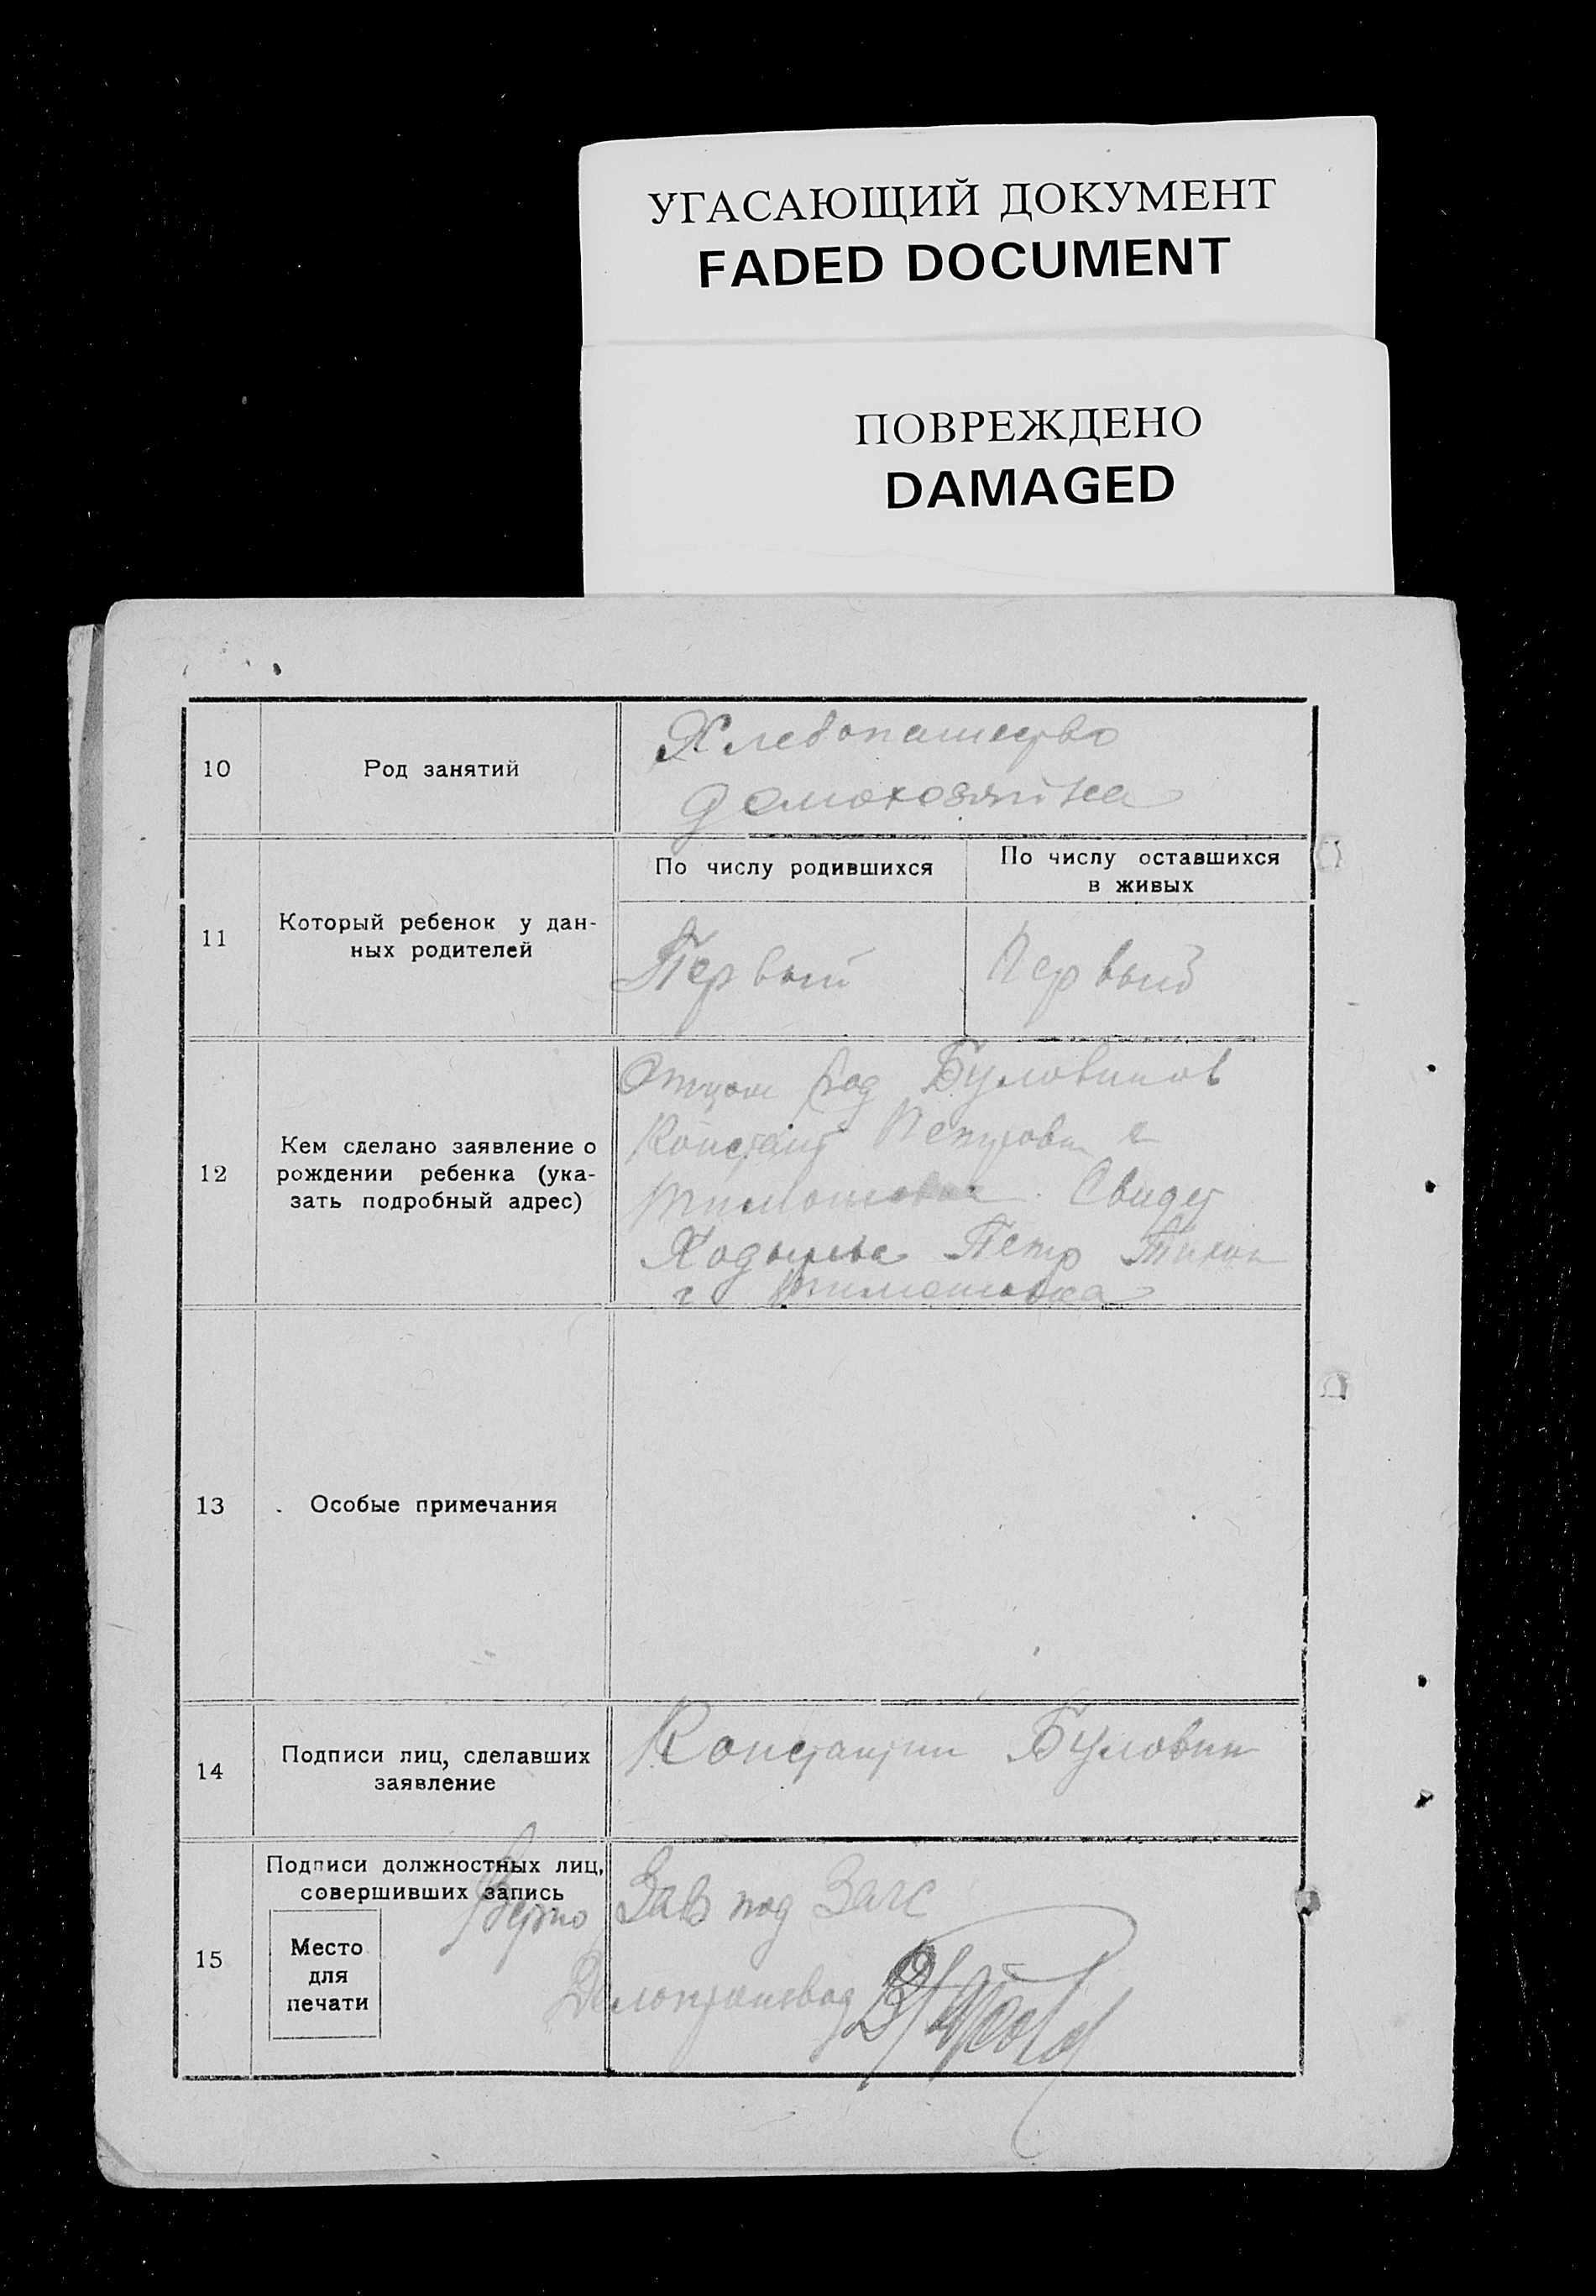 УГАСАЮЩИЙ ДОКУМЕНТ
FADED DOCUMENT
ПОВРЕЖДЕНО
DAMAGED
10
Род занятий
Хлебопашество
домохозяйка
11
Который ребенок у дан-
ных родителей
По числу родившихся
Первый
По числу оставшихся
в живых
Первый
12
Кем сделано заявление о
рождении ребенка (ука-
зать подробный адрес)
Отцом
Петрови
Свидет
Петр Тихон
г Тимошовка
13
Особые примечания
14
Подписи лиц, сделавших
заявление
Константин Буловин
15
Подписи должностных лиц,
совершивших запись
Место
для
печати
Верно
Зав под Загс
Делопроизвод